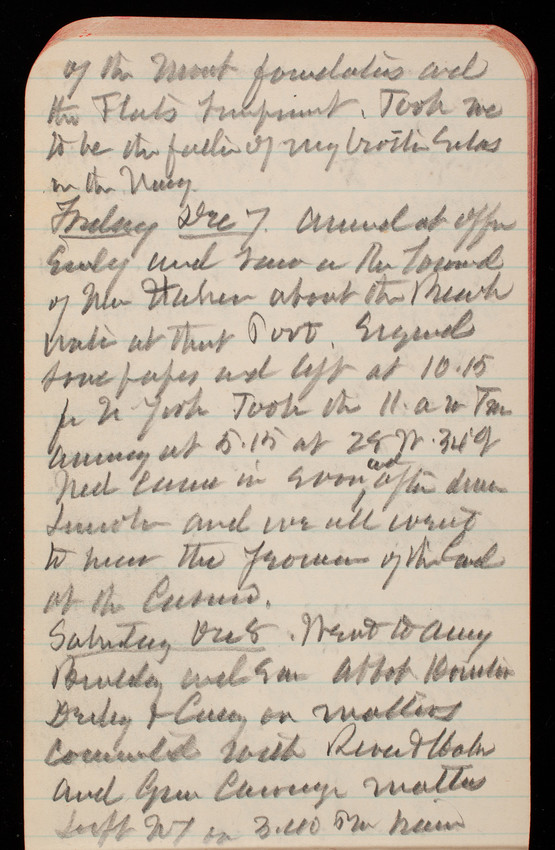 of the most foundations and
the Flats . Took me
to be the father of my brother Silas
in the Navy.
Friday Dec 7. arrived at office
Early and saw a
of New Haven about the Break
water at that Port. Signed
some papers and left at 10.15
for N York Took the 11 a m Tra
arriving at 5.15 at 28 W. 34th
Ned came in Even and after dinner
Lincoln and we all went
to hear the Yeomen of the Guard
at the Casino.
Saturday Dec 8. Went to Army
Building and saw Abbot Houston
and on matters
connected with River & Harbor
and Gun Carriage matters
Left NY on 3.40 Pm train